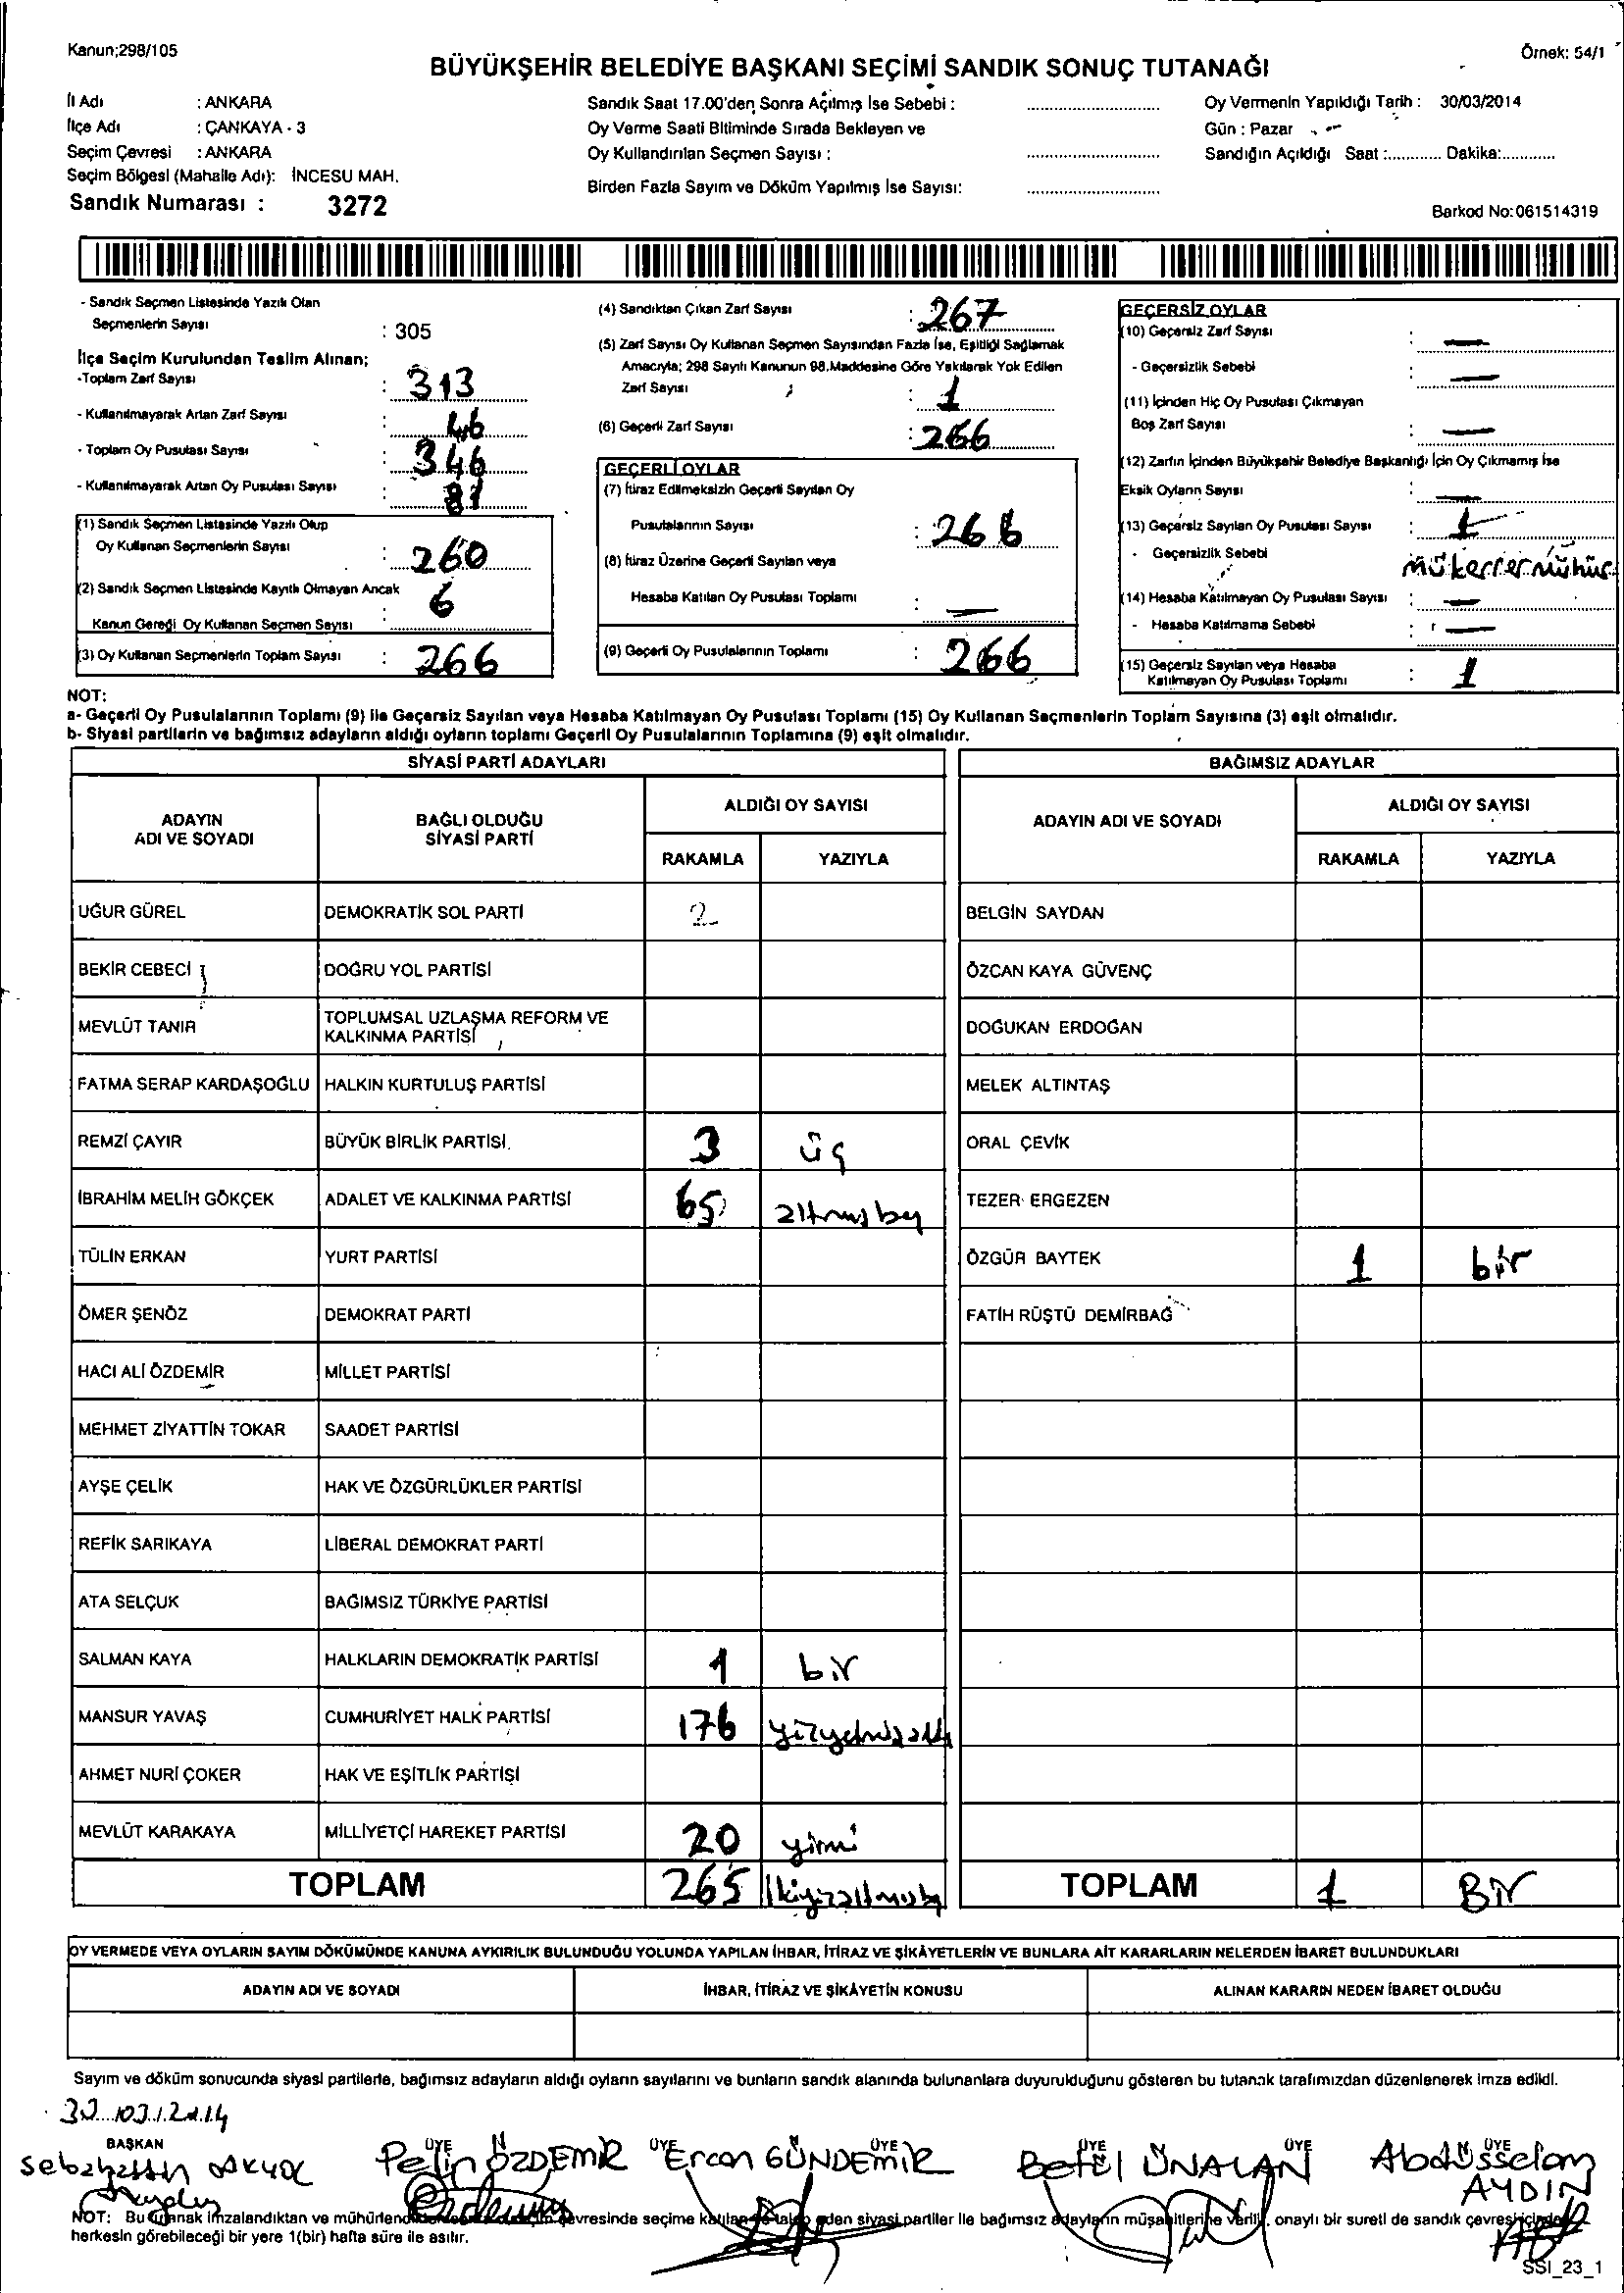 Kanun;298/105
Örnek: 54/1
BÜYÜKŞEHİR BELEDİYE BAŞKANI SEÇİMİ SANDIK SONUÇ TUTANAĞI
İl Adı : ANKARA
İlçe Adı : ÇANKAYA - 3
Seçim Çevresi : ANKARA
Seçim Bölgesi (Mahalle Adı): İNCESU MAH.
Sandık Numarası : 3272
Sandık Saat 17.00'den Sonra Açılmış İse Sebebi :
Oy Verme Saati Bitiminde Sırada Bekleyen ve
Oy Kullandırılan Seçmen Sayısı :
Birden Fazla Sayım ve Döküm Yapılmış İse Sayısı:
Oy Vermenin Yapıldığı Tarih : 30/03/2014
Gün : Pazar
Sandığın Açıldığı Saat :............ Dakika:............
Barkod No:061514319
- Sandık Seçmen Listesinde Yazılı Olan
Seçmenlerin Sayısı : 305
İlçe Seçim Kurulundan Teslim Alınan;
-Toplam Zarf Sayısı : 313
- Kullanılmayarak Artan Zarf Sayısı : 46
- Toplam Oy Pusulası Sayısı : 346
- Kullanılmayarak Artan Oy Pusulası Sayısı :
(1) Sandık Seçmen Listesinde Yazılı Olup
Oy Kullanan Seçmenlerin Sayısı : 260
(2) Sandık Seçmen Listesinde Kayıtlı Olmayan Ancak
Kanun Gereği Oy Kullanan Seçmen Sayısı : 6
(3) Oy Kullanan Seçmenlerin Toplam Sayısı : 266
(4) Sandıktan Çıkan Zarf Sayısı : 267
(5) Zarf Sayısı Oy Kullanan Seçmen Sayısından Fazla İse, Eşitliği Sağlamak
Amacıyla; 298 Sayılı Kanunun 98.Maddesine Göre Yakılarak Yok Edilen
Zarf Sayısı : 1
(6) Geçerli Zarf Sayısı : 266
GEÇERLİ OYLAR
(7) İtiraz Edilmeksizin Geçerli Sayılan Oy
Pusulalarının Sayısı : 266
(8) İtiraz Üzerine Geçerli Sayılan veya
Hesaba Katılan Oy Pusulası Toplamı : —
(9) Geçerli Oy Pusulalarının Toplamı : 266
GEÇERSİZ OYLAR
(10) Geçersiz Zarf Sayısı : —
- Geçersizlik Sebebi : —
(11) İçinden Hiç Oy Pusulası Çıkmayan
Boş Zarf Sayısı : —
(12) Zarfın İçinden Büyükşehir Belediye Başkanlığı İçin Oy Çıkmamış İse
Eksik Oyların Sayısı : —
(13) Geçersiz Sayılan Oy Pusulası Sayısı : 1
- Geçersizlik Sebebi mükerrer mühür
(14) Hesaba Katılmayan Oy Pusulası Sayısı : —
- Hesaba Katılmama Sebebi : —
(15) Geçersiz Sayılan veya Hesaba
Katılmayan Oy Pusulası Toplamı : 1
NOT:
a- Geçerli Oy Pusulalarının Toplamı (9) ile Geçersiz Sayılan veya Hesaba Katılmayan Oy Pusulası Toplamı (15) Oy Kullanan Seçmenlerin Toplam Sayısına (3) eşit olmalıdır.
b- Siyasi partilerin ve bağımsız adayların aldığı oyların toplamı Geçerli Oy Pusulalarının Toplamına (9) eşit olmalıdır.
SİYASİ PARTİ ADAYLARI
ADAYIN ADI VE SOYADI
BAĞLI OLDUĞU SİYASİ PARTİ
ALDIĞI OY SAYISI
RAKAMLA YAZIYLA
UĞUR GÜREL DEMOKRATİK SOL PARTİ 2
BEKİR CEBECİ DOĞRU YOL PARTİSİ
MEVLÜT TANIR TOPLUMSAL UZLAŞMA REFORM VE
KALKINMA PARTİSİ
FATMA SERAP KARDAŞOĞLU HALKIN KURTULUŞ PARTİSİ
REMZİ ÇAYIR BÜYÜK BİRLİK PARTİSİ 3 üç
İBRAHİM MELİH GÖKÇEK ADALET VE KALKINMA PARTİSİ 65 altmış beş
TÜLİN ERKAN YURT PARTİSİ
ÖMER ŞENÖZ DEMOKRAT PARTİ
HACI ALİ ÖZDEMİR MİLLET PARTİSİ
MEHMET ZİYATTİN TOKAR SAADET PARTİSİ
AYŞE ÇELİK HAK VE ÖZGÜRLÜKLER PARTİSİ
REFİK SARIKAYA LİBERAL DEMOKRAT PARTİ
ATA SELÇUK BAĞIMSIZ TÜRKİYE PARTİSİ
SALMAN KAYA HALKLARIN DEMOKRATİK PARTİSİ 1 bir
MANSUR YAVAŞ CUMHURİYET HALK PARTİSİ 176 yüzyetmişaltı
AHMET NURİ ÇOKER HAK VE EŞİTLİK PARTİSİ
MEVLÜT KARAKAYA MİLLİYETÇİ HAREKET PARTİSİ 20 yirmi
TOPLAM 265 İkiyüzaltmışbeş
BAĞIMSIZ ADAYLAR
ADAYIN ADI VE SOYADI
ALDIĞI OY SAYISI
RAKAMLA YAZIYLA
BELGİN SAYDAN
ÖZCAN KAYA GÜVENÇ
DOĞUKAN ERDOĞAN
MELEK ALTINTAŞ
ORAL ÇEVİK
TEZER ERGEZEN
ÖZGÜR BAYTEK 1 bir
FATİH RÜŞTÜ DEMİRBAĞ
TOPLAM 1 Bir
OY VERMEDE VEYA OYLARIN SAYIM DÖKÜMÜNDE KANUNA AYKIRILIK BULUNDUĞU YOLUNDA YAPILAN İHBAR, İTİRAZ VE ŞİKÂYETLERİN VE BUNLARA AİT KARARLARIN NELERDEN İBARET BULUNDUKLARI
ADAYIN ADI VE SOYADI İHBAR, İTİRAZ VE ŞİKÂYETİN KONUSU ALINAN KARARIN NEDEN İBARET OLDUĞU
Sayım ve döküm sonucunda siyasi partilerle, bağımsız adayların aldığı oyların sayılarını ve bunların sandık alanında bulunanlara duyurulduğunu gösteren bu tutanak tarafımızdan düzenlenerek imza edildi.
30/03/2014
BAŞKAN ÜYE ÜYE ÜYE ÜYE ÜYE ÜYE
Sebahattin AKYOL Pelin ÖZDEMİR Ercan GÜNDEMİR Betül ÜNALAN Abdüsselam
AYDIN
NOT: Bu tutanak imzalandıktan ve mühürlendikten çevresinde seçime katılan talep eden siyasi partiler ile bağımsız adayların müşahitlerine verilir, onaylı bir sureti de sandık çevresi içinde
herkesin görebileceği bir yere 1(bir) hafta süre ile asılır.
SSI_23_1